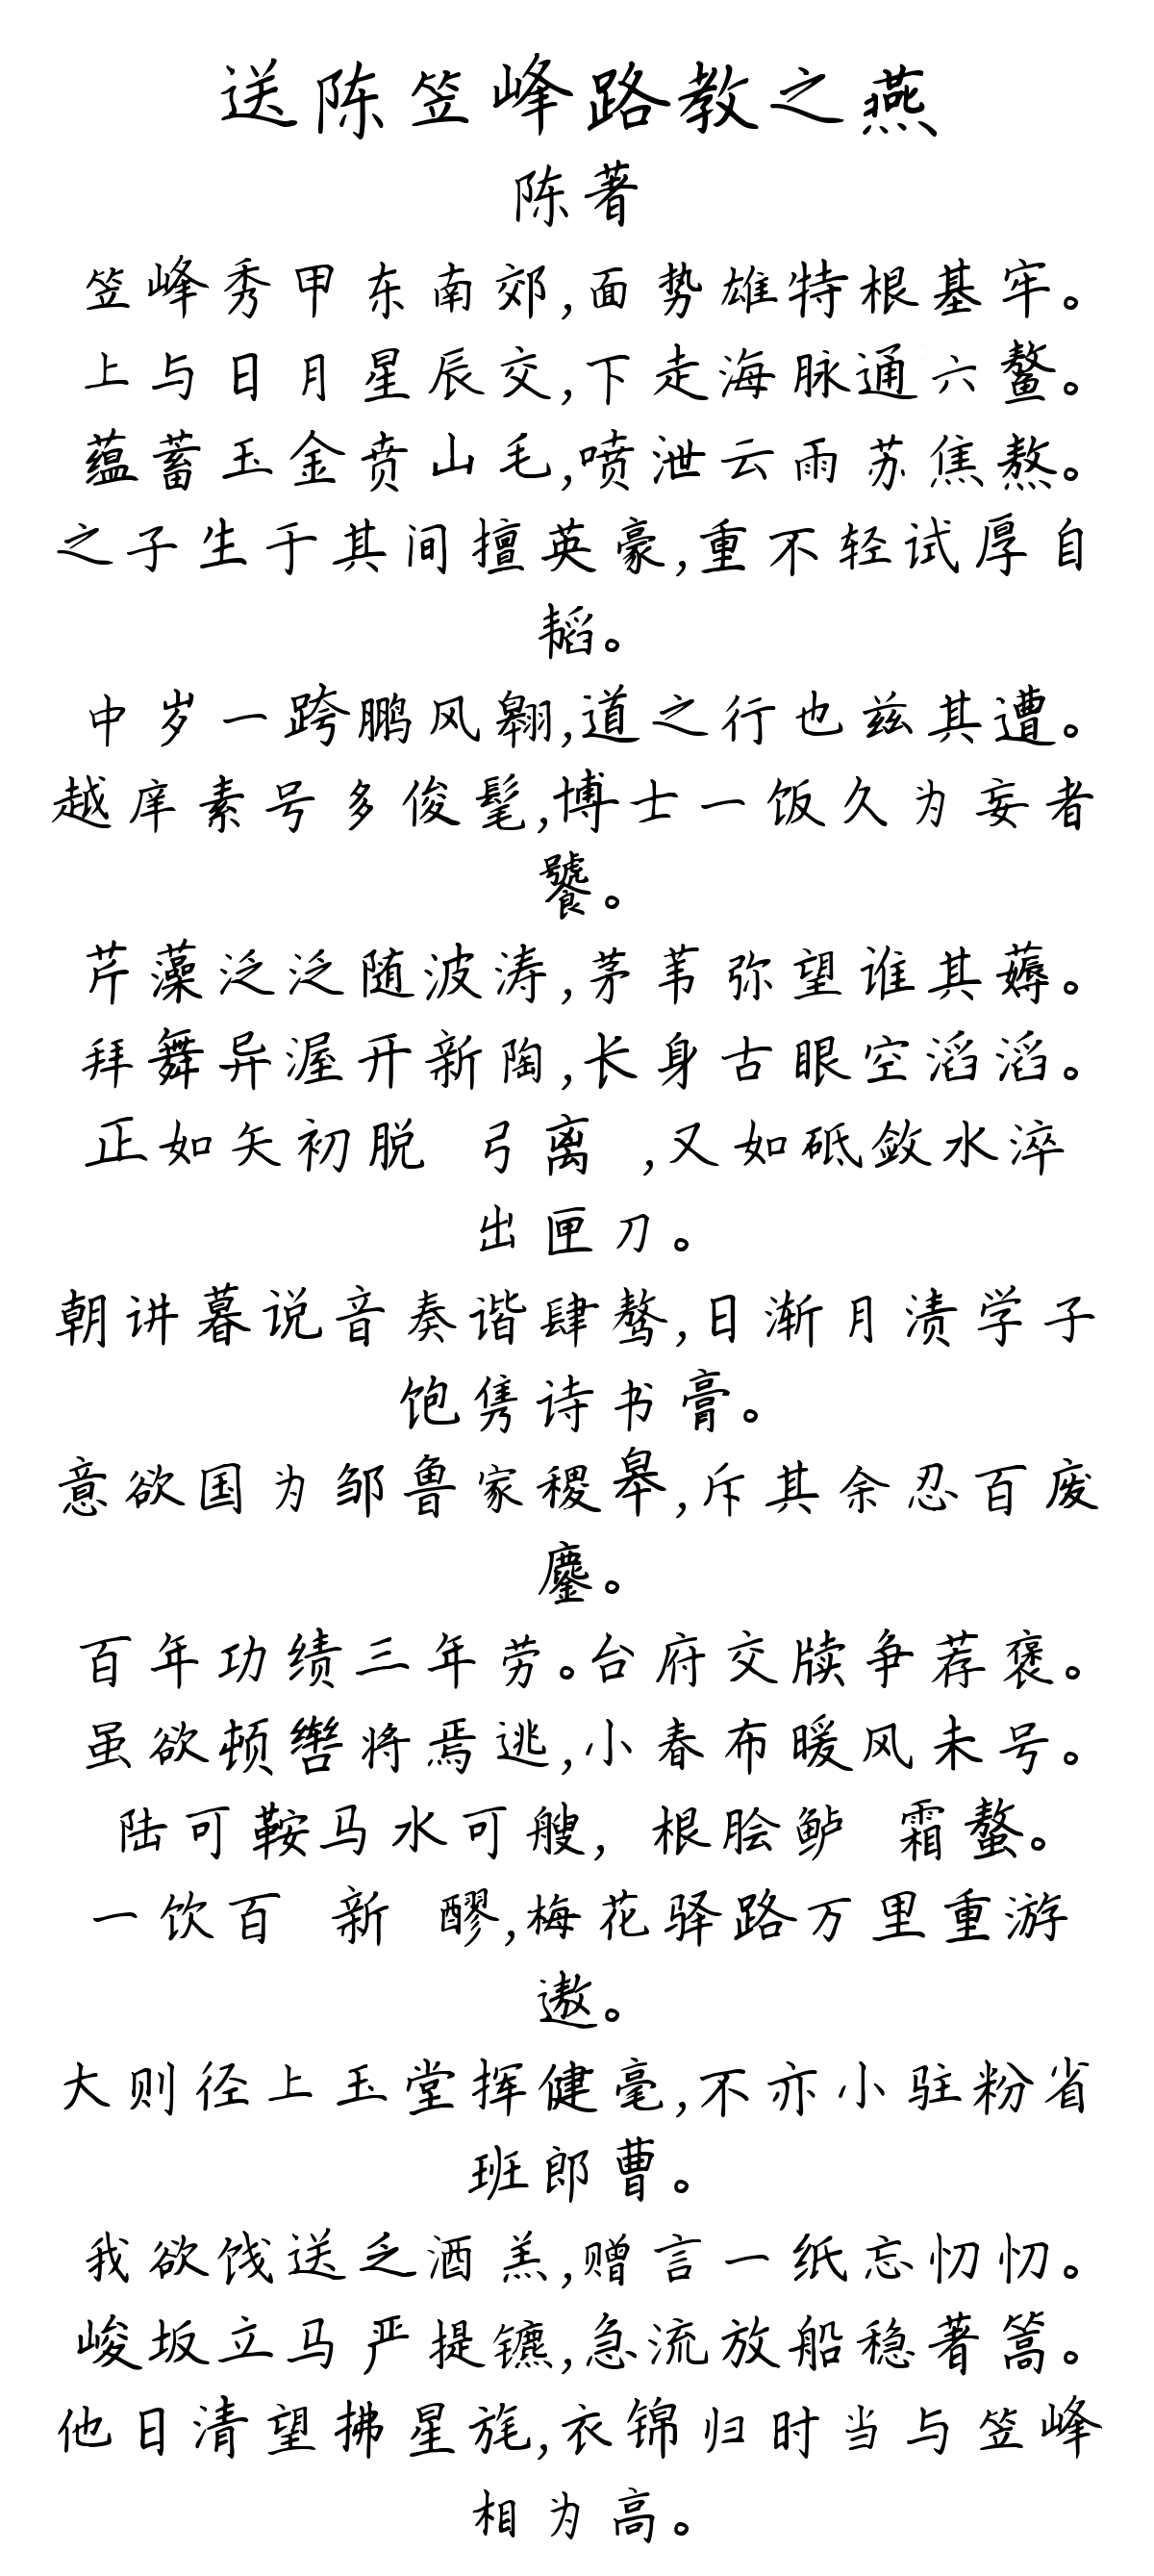 送陈笠峰路教之燕
陈著
笠峰秀甲东南郊,面势雄特根基牢。
上与日月星辰交,下走海脉通六鳌。
蕴蓄玉金贲山毛,喷泄云雨苏焦熬。
之子生于其间擅英豪,重不轻试厚自
韬。
中岁一跨鹏风翱,道之行也兹其遭。
越庠素号多俊髦,博士一饭久为妄者
饕。
芹藻泛泛随波涛,茅苇弥望谁其薅。
拜舞异渥开新陶,长身古眼空滔滔。
正如矢初脱 弓离 ,又如砥敛水淬
出匣刀。
朝讲暮说音奏谐肆骜,日渐月渍学子
饱隽诗书膏。
意欲国为邹鲁家稷皋,斥其余忍百废
鏖。
百年功绩三年劳。台府交牍争荐褒。
虽欲顿辔将焉逃,小春布暖风未号。
陆可鞍马水可艘, 根脍鲈 霜螯。
一饮百 新 醪,梅花驿路万里重游
遨。
大则径上玉堂挥健毫,不亦小驻粉省
班郎曹。
我欲饯送乏酒羔,赠言一纸忘忉忉。
峻坂立马严提镳,急流放船稳著篙。
他日清望拂星旄,衣锦归时当与笠峰
相为高。